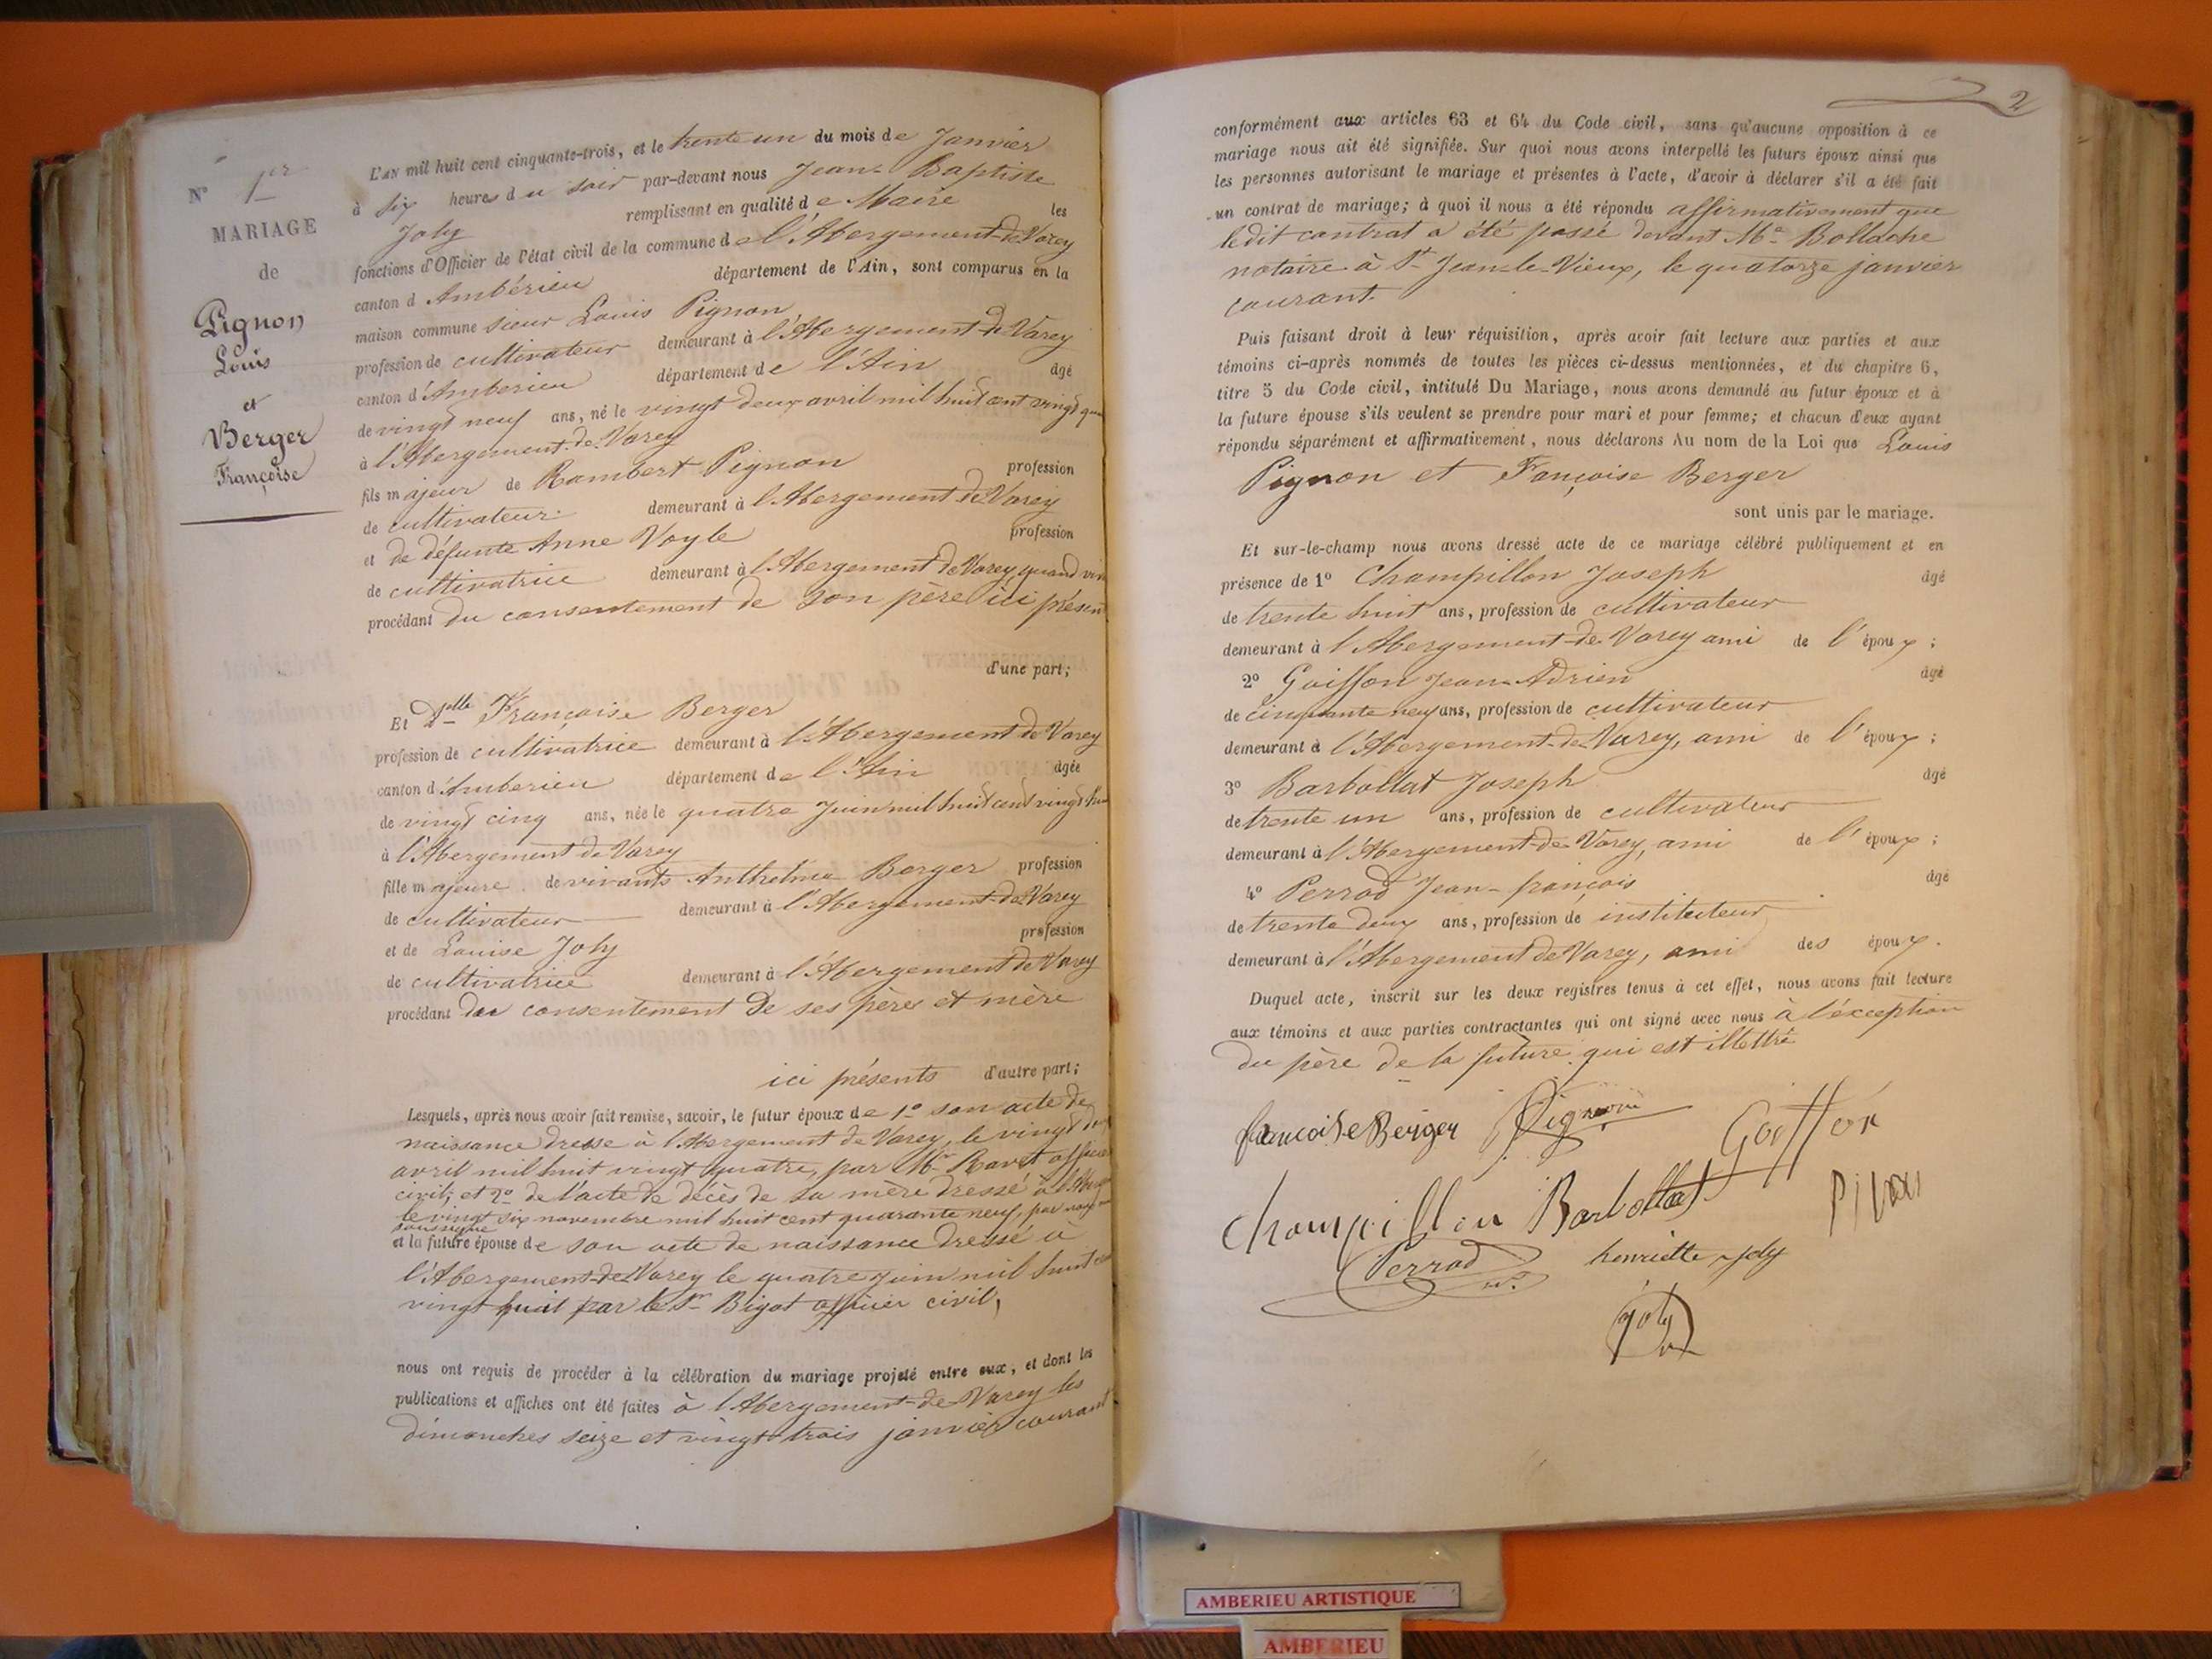 N° 1er
MARIAGE
de
Pignon
Louis
et
Berger
Françoise
L'AN mil huit cent cinquante-trois, et le trente un du mois de Janvier
à six heures du soir par-devant nous Jean-Baptiste
Joly remplissant en qualité de Maire les
fonctions d'Officier de l'état civil de la commune de l'Abergement-de-Varey
canton d'Ambérieu département de l'Ain, sont comparus en la
maison commune sieur Louis Pignon
profession de cultivateur demeurant à l'Abergement-de-Varey
canton d'Amberieu département de l'Ain âgé
de vingt neuf ans, né le vingt deux avril mil huit cent vingt qua
à l'Abergement-de-Varey
fils majeur de Rambert Pignon profession
de cultivateur demeurant à l'Abergement de Varey
et de défunte Anne Vayle profession
de cultivatrice demeurant à l'Abergement de Varey, quand viv
procédant du consentement de son père ici présen
d'une part;
Et Delle Françoise Berger
profession de cultivatrice demeurant à l'Abergement de Varey
canton d'Amberieu département de l'Ain âgée
de vingt cinq ans, née le quatre Juin mil huit cent vingt hu
à l'Abergement de Varey
fille majeure de vivants Anthelme Berger profession
de cultivateur demeurant à l'Abergement-de-Varey
et de Louise Joly profession
de cultivatrice demeurant à l'Abergement de Varey
procédant du consentement de ses père et mère
ici présents d'autre part;
Lesquels, après nous avoir fait remise, savoir, le futur époux de 1° son acte de
naissance dressé à l'Abergement de Varey, le vingt deux
avril mil huit vingt quatre, par Mr Ravet officier
civil; et 2° de l'acte de décès de sa mère dressé à l'Aber
le vingt six novembre mil huit cent quarante neuf, par nous
soussigné
et la future épouse de son acte de naissance dressé à
l'Abergement-de-Varey le quatre juin mil huit cent
vingt huit par le Sr Bigot officier civil,
nous ont requis de procéder à la célébration du mariage projeté entre eux, et dont les
publications et affiches ont été faites à l'Abergement-de-Varey les
dimanches seize et vingt-trois janvier courant
2
conformément aux articles 63 et 64 du Code civil, sans qu'aucune opposition à ce
mariage nous ait été signifiée. Sur quoi nous avons interpellé les futurs époux ainsi que
les personnes autorisant le mariage et présentes à l'acte, d'avoir à déclarer s'il a été fait
un contrat de mariage; à quoi il nous a été répondu affirmativement que
ledit contrat a été passé devant Me Bollache
notaire à St Jean-le-Vieux, le quatorze janvier
courant.
Puis faisant droit à leur réquisition, après avoir fait lecture aux parties et aux
témoins ci-après nommés de toutes les pièces ci-dessus mentionnées, et du chapitre 6,
titre 5 du Code civil, intitulé Du Mariage, nous avons demandé au futur époux et à
la future épouse s'ils veulent se prendre pour mari et pour femme; et chacun d'eux ayant
répondu séparément et affirmativement, nous déclarons Au nom de la Loi que Louis
Pignon et Fançoise Berger
sont unis par le mariage.
Et sur-le-champ nous avons dressé acte de ce mariage célébré publiquement et en
présence de 1° Champillon Joseph âgé
de trente huit ans, profession de cultivateur
demeurant à l'Abergement-de-Varey ami de l'époux;
2° Goiffon Jean-Adrien âgé
de cinquante neuf ans, profession de cultivateur
demeurant à l'Abergement-de-Varey, ami de l'époux;
3° Barbollat Joseph âgé
de trente un ans, profession de cultivateur
demeurant à l'Abergement-de-Varey, ami de l'époux;
4° Perrod Jean-françois âgé
de trente deux ans, profession de instituteur
demeurant à l'Abergement de Varey, ami des époux.
Duquel acte, inscrit sur les deux registres tenus à cet effet, nous avons fait lecture
aux témoins et aux parties contractantes qui ont signé avec nous à l'exception
du père de la future qui est illettré
francoise Berger Pignon Goiffon
Champillon Barbollat
Perrod henriette Joly
Joly
AMBERIEU ARTISTIQUE
AMBERIEU